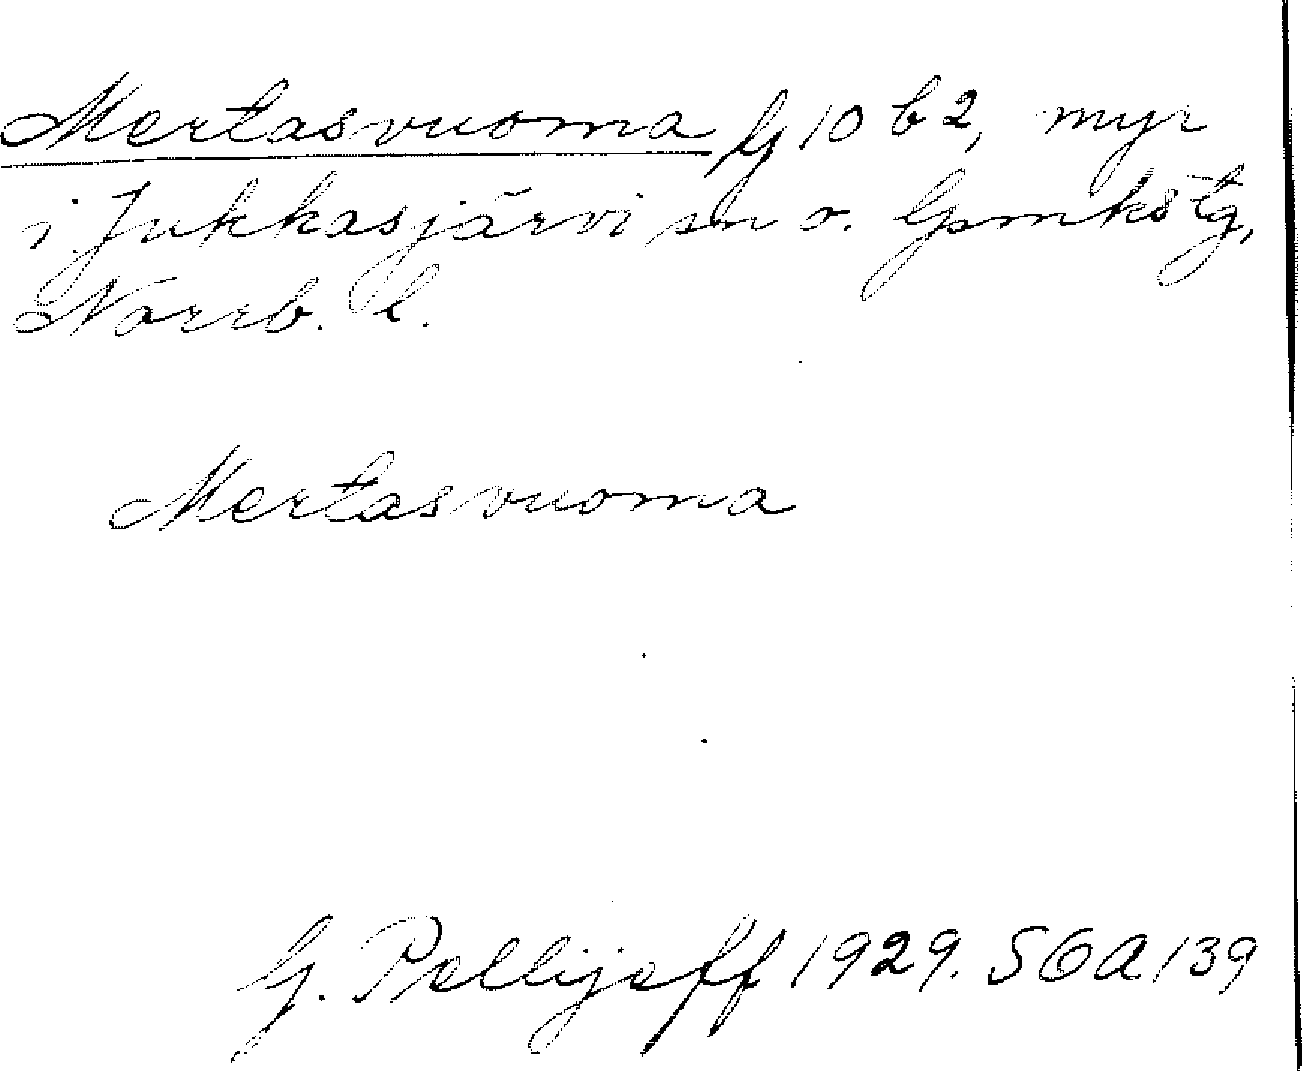 Mertasvuoma G 10 b 2, myr
i Jukkasjärvi sn o. lpmkstg,
Norrb. l.
Mertasvuoma
G. Pellijeff 1929. SOA 139